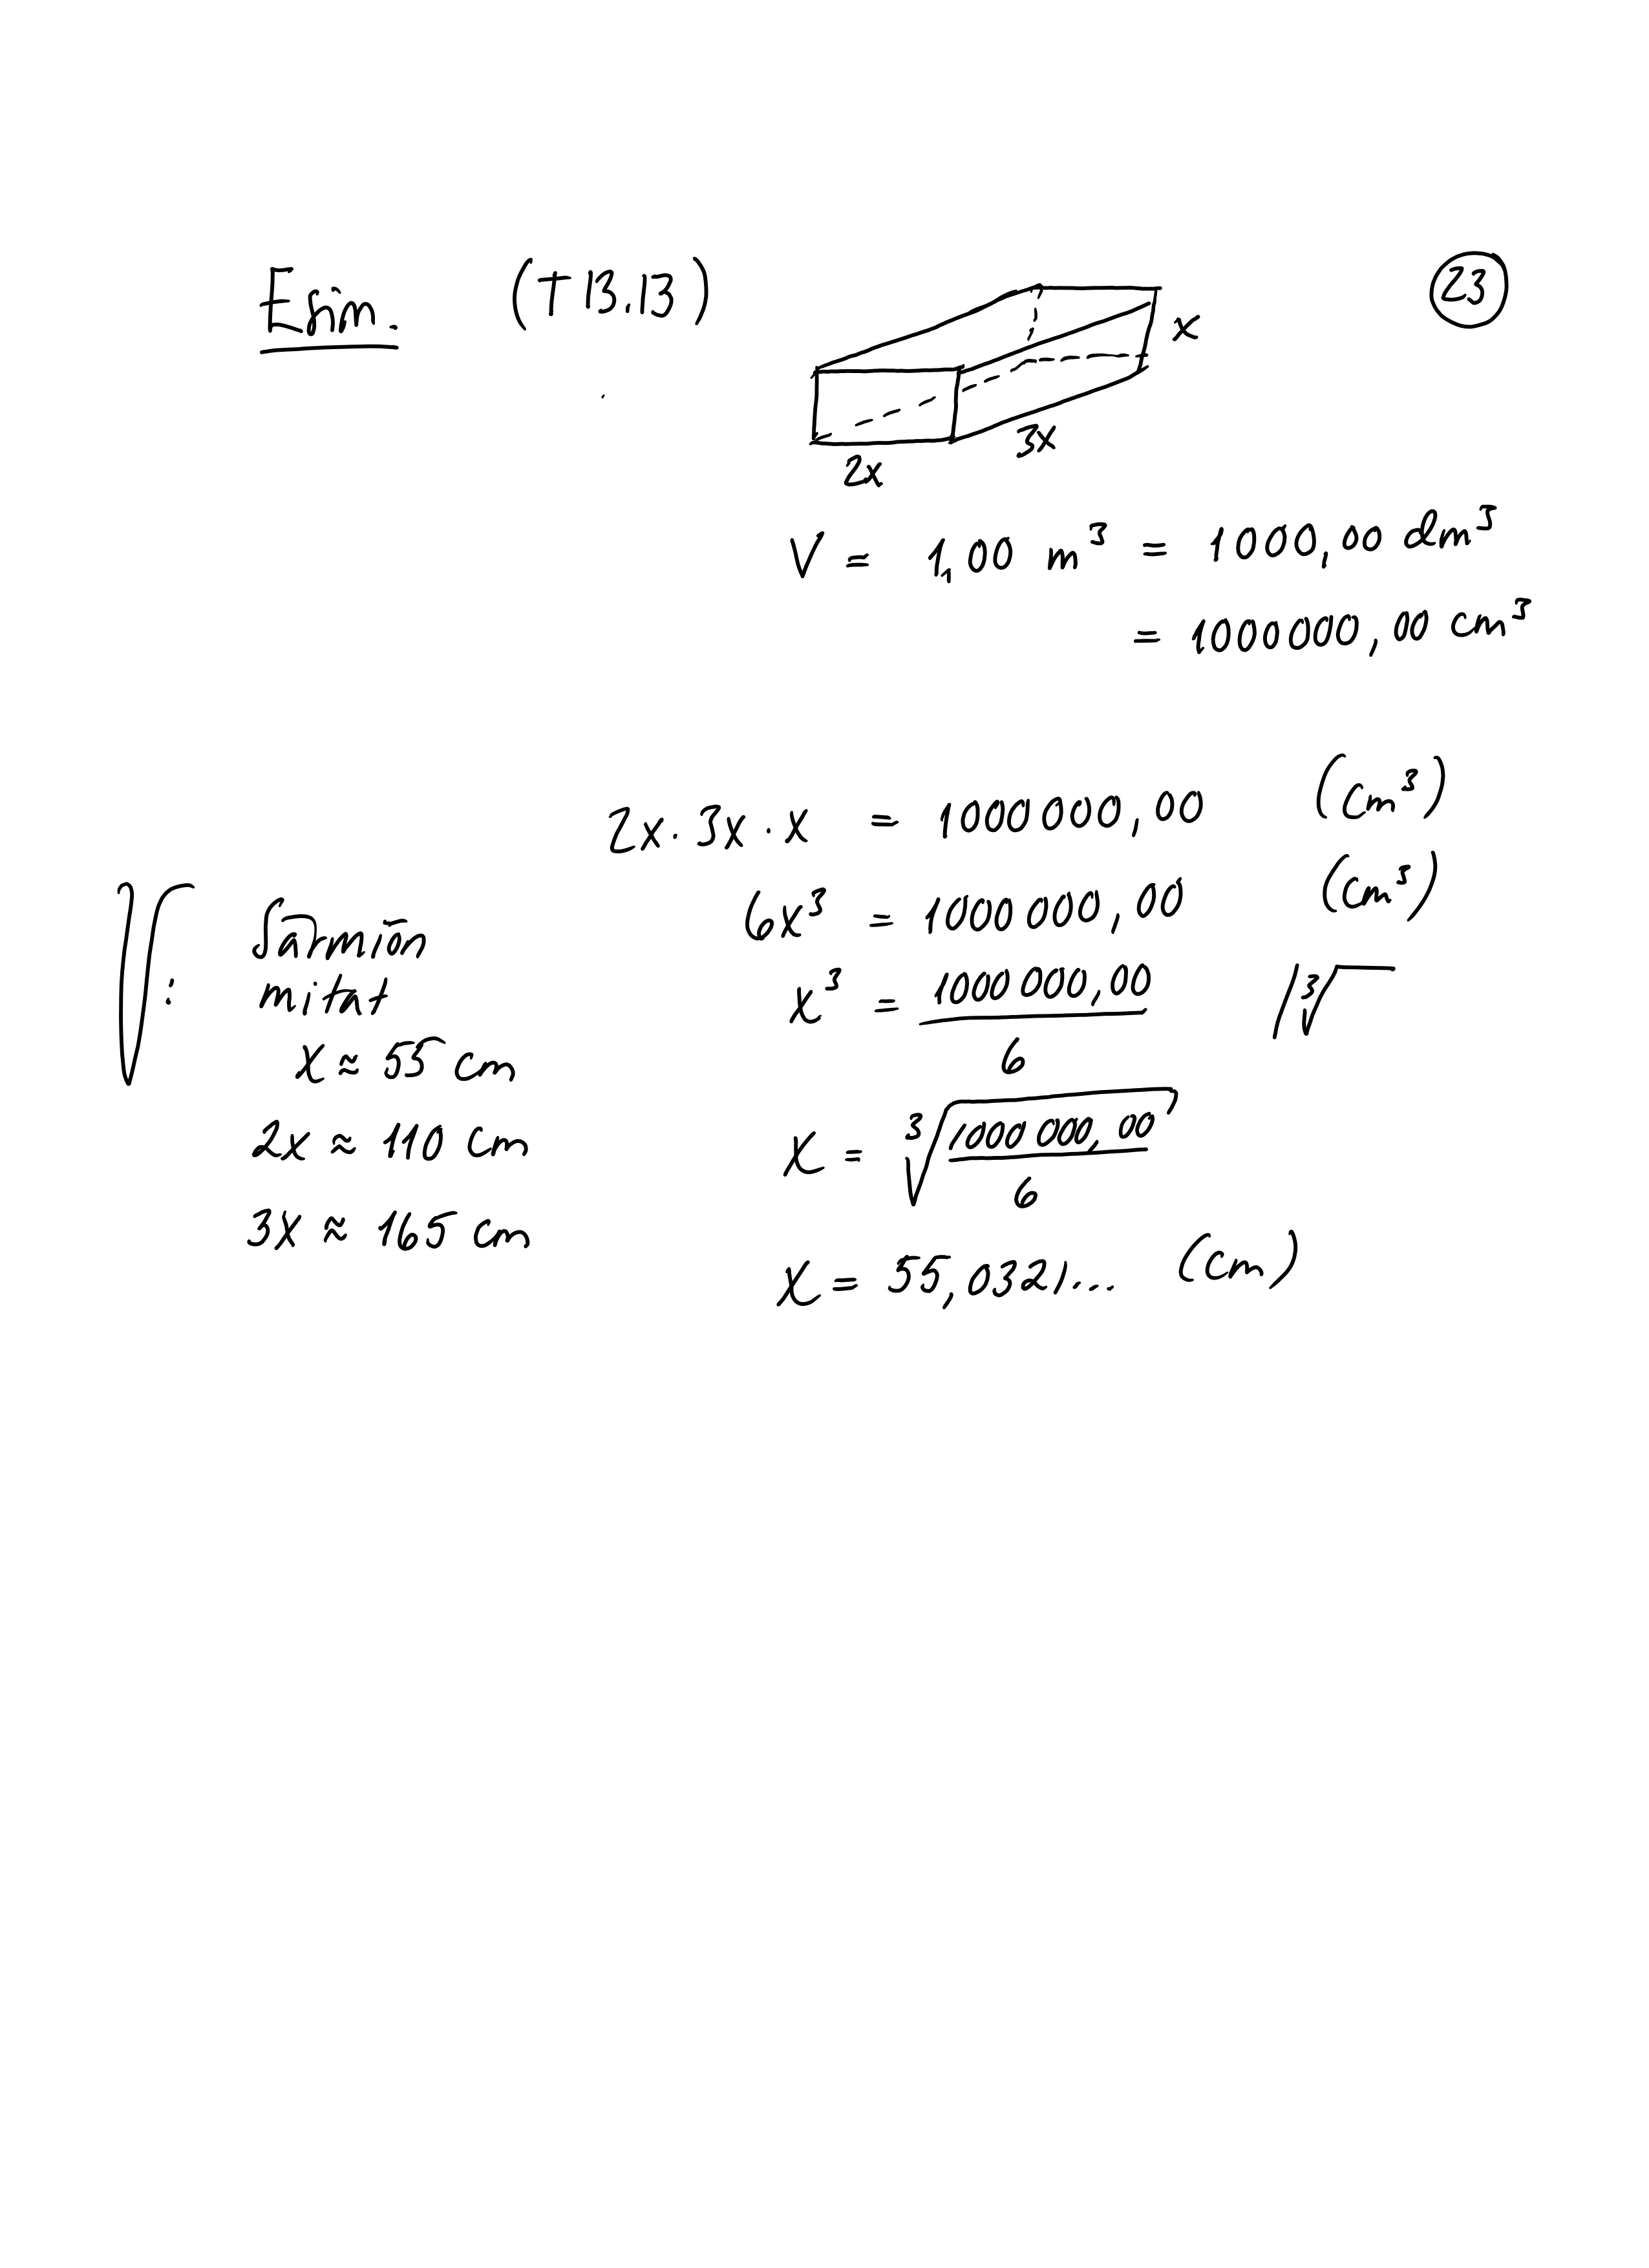 Esim. (T 13.13) 23
x
3x
2x
V = 1,00 m³ = 1000,00 dm³
= 1000000,00 cm³
2x · 3x · x = 1000000,00 (cm³)
6x³ = 1000000,00 (cm³)
x³ = 1000000,00 / 6 ∛
x = ∛(1000000,00 / 6)
x = 55,0321... (cm)
V: Särmiön
mitat
x ≈ 55 cm
2x ≈ 110 cm
3x ≈ 165 cm